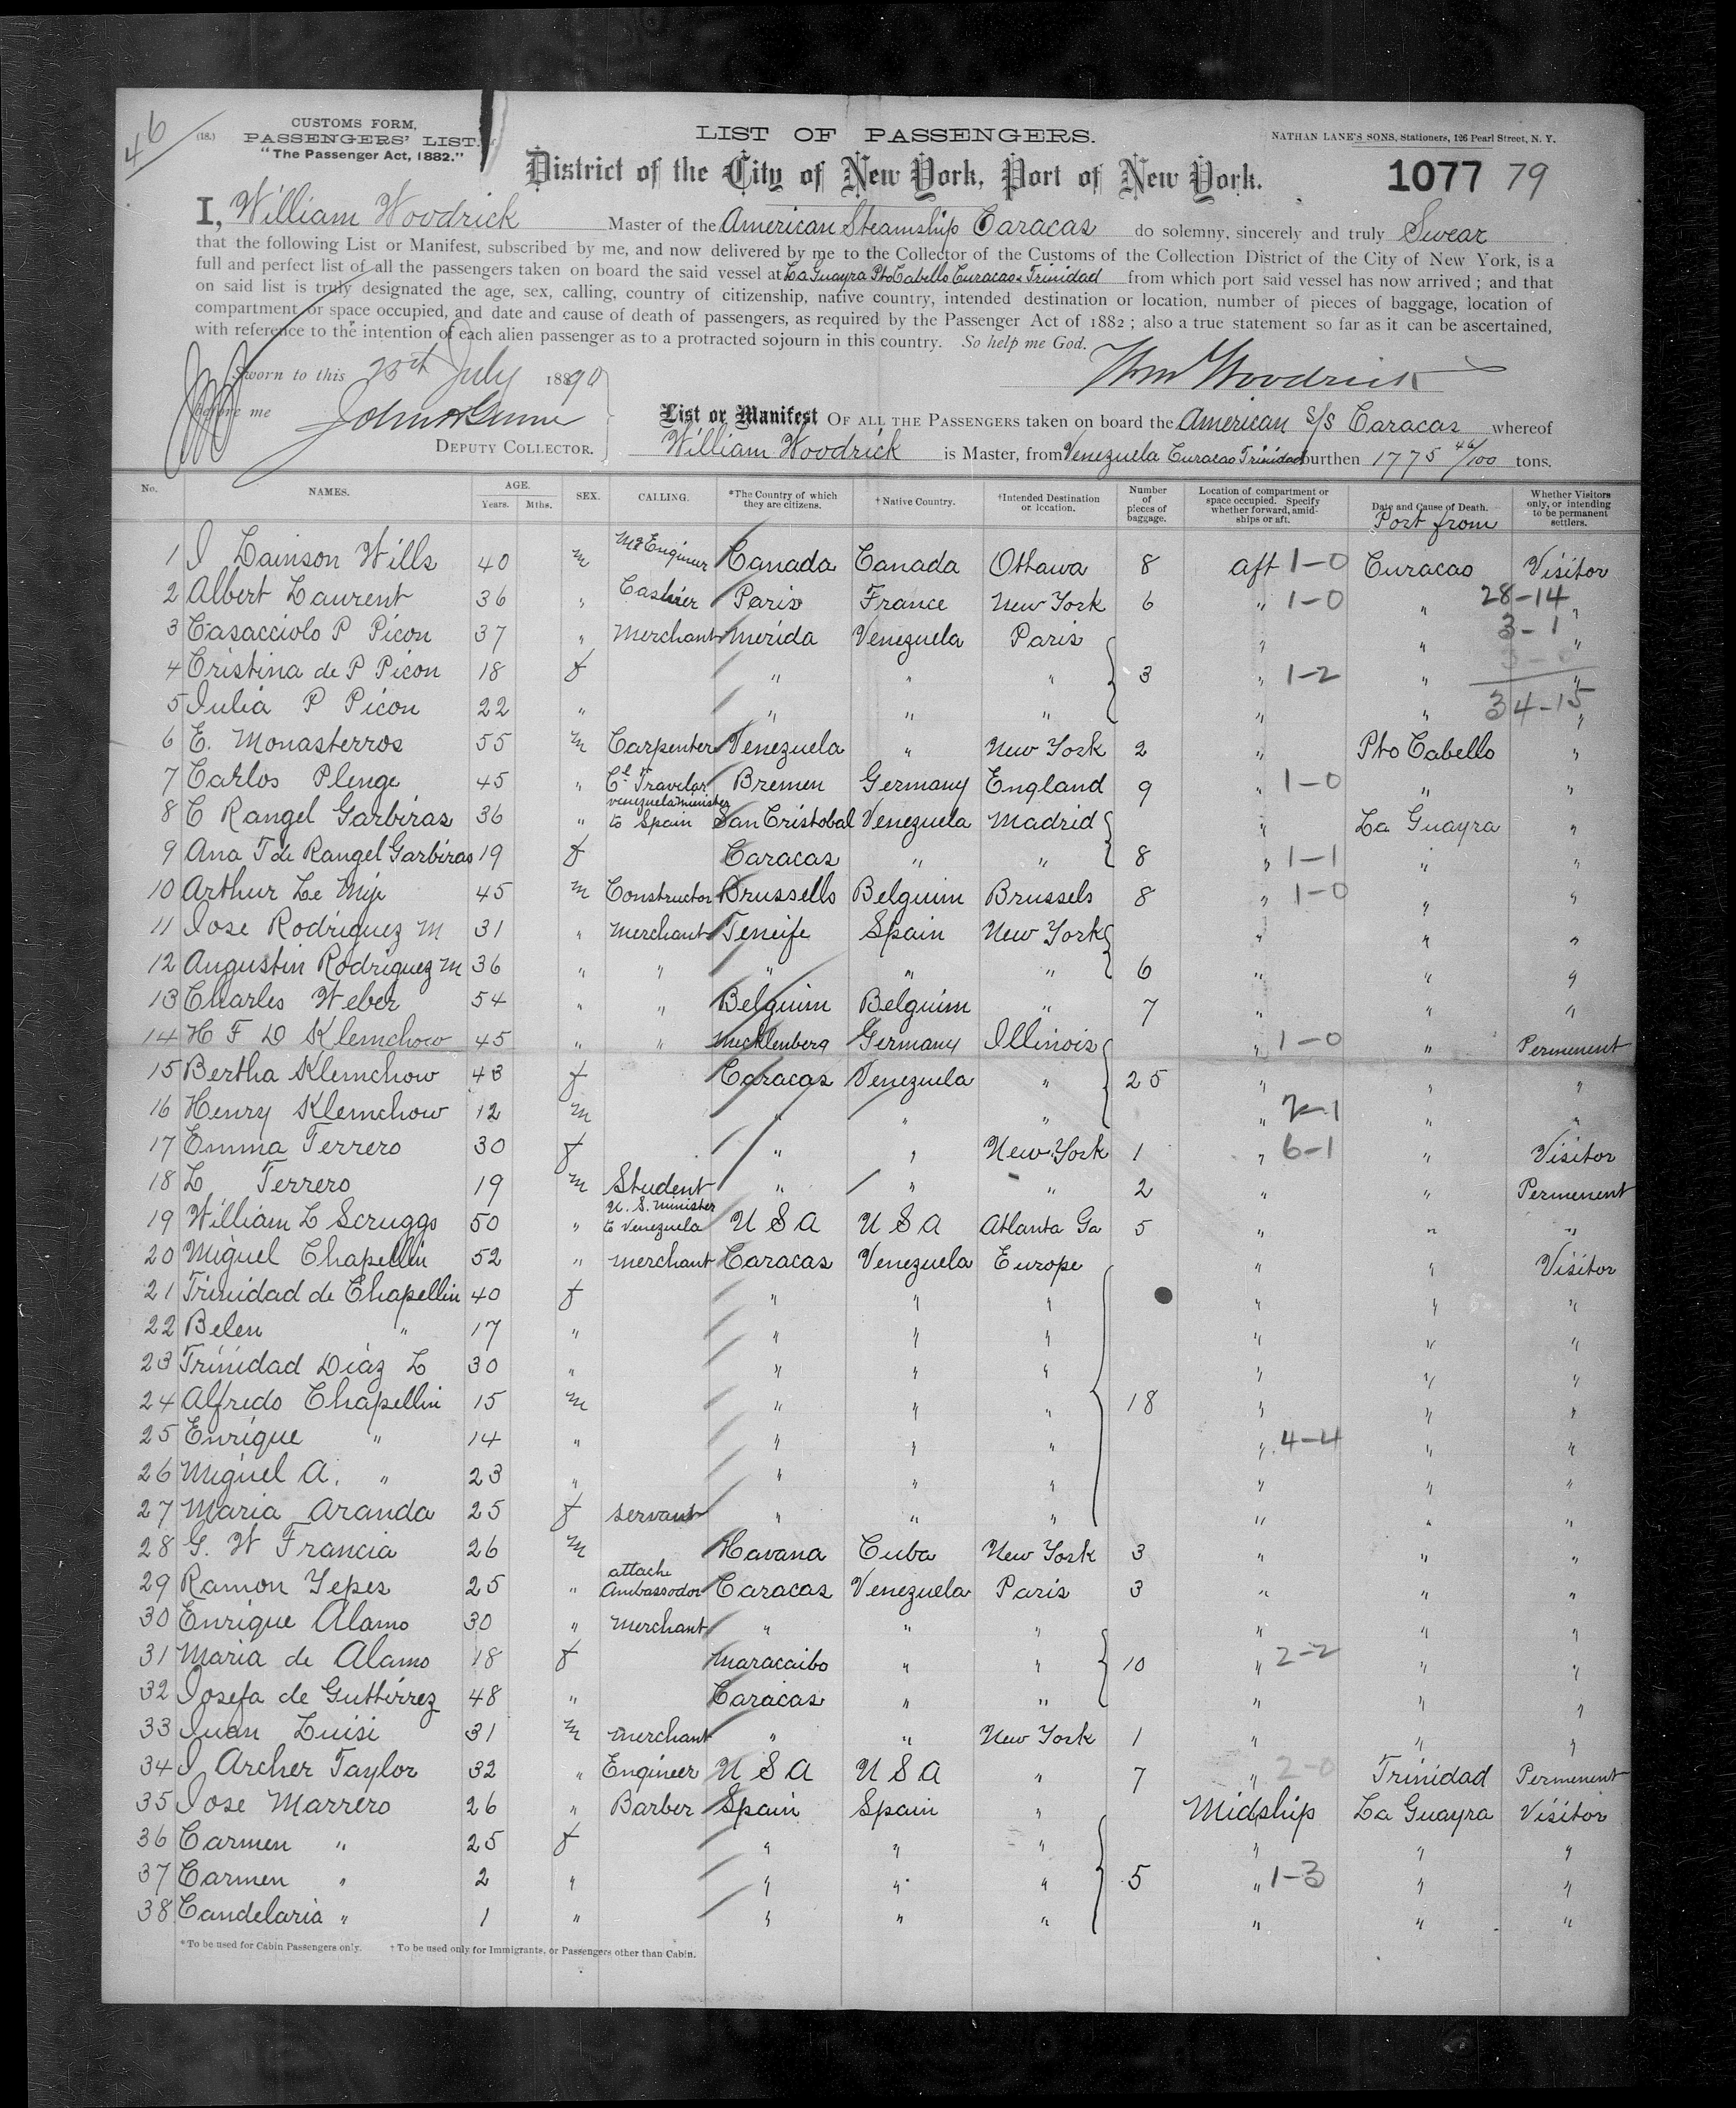 46
(18.)
CUSTOMS FORM,
PASSENGERS' LIST.
"The Passenger Act, 1882."
LIST OF PASSENGERS.
NATHAN LANE'S SONS, Stationers, 126 Pearl Street, N. Y.
District of the City of New York, Port of New York.
1077 79
I, William Woodrick Master of the American Steamship Caracas do solemny, sincerely and truly Swear
that the following List or Manifest, subscribed by me, and now delivered by me to the Collector of the Customs of the Collection District of the City of New York, is a
full and perfect list of all the passengers taken on board the said vessel at La Guayra Pto Cabello Curacao & Trinidad from which port said vessel has now arrived ; and that
on said list is truly designated the age, sex, calling, country of citizenship, native country, intended destination or location, number of pieces of baggage, location of
compartment or space occupied, and date and cause of death of passengers, as required by the Passenger Act of 1882 ; also a true statement so far as it can be ascertained,
with reference to the intention of each alien passenger as to a protracted sojourn in this country. So help me God.
Sworn to this 25th July 1890
Wm Woodrick
before me
DEPUTY COLLECTOR.
List or Manifest OF ALL THE PASSENGERS taken on board the American S/S Caracas whereof
William Woodrick is Master, from Venezuela Curacao Trinidad burthen 1775 46/100 tons.
No. NAMES. AGE. Years. Mths. SEX. CALLING. *The Country of which they are citizens. † Native Country. †Intended Destination or location. Number of pieces of baggage. Location of compartment or space occupied. Specify whether forward, amidships or aft. Date and Cause of Death. Port from Whether Visitors only, or intending to be permanent settlers.
1 I Lainson Wills 40 m Mg Engineer Canada Canada Ottawa 8 aft 1-0 Curacao Visitor
2 Albert Laurent 36 " Cashier Paris France New York 6 " 1-0 " 28-14 "
3 Casacciolo P Picon 37 " Merchant Merida Venezuela Paris " " 3-1 "
4 Cristina de P Picon 18 f " " " 3 " 1-2 " "
5 Julia P Picon 22 " " " " " " 34-15 "
6 E. Monasterros 55 m Carpenter Venezuela " New York 2 " Pto Cabello "
7 Carlos Plenge 45 " Cl Travelar Bremen Germany England 9 " 1-0 " "
8 C Rangel Garbiras 36 " Venezuela Minister to Spain San Cristobal Venezuela Madrid " La Guayra "
9 Ana T de Rangel Garbiras 19 f Caracas " " 8 " 1-1 " "
10 Arthur Le 45 m Constructor Brussells Belguim Brussels 8 " 1-0 " "
11 Jose Rodriguez M 31 " Merchant Teneife Spain New York " " "
12 Augustin Rodriguez M 36 " " " " " 6 " " "
13 Charles Weber 54 " " Belguim Belguim " 7 " " "
14 H F D Klemchow 45 " " Mecklenberg Germany Illinois " 1-0 " Permenent
15 Bertha Klemchow 43 f Caracas Venezuela " 25 " " "
16 Henry Klemchow 12 m " " " " 2-1 " "
17 Emma Terrero 30 f " " New York 1 " 6-1 " Visitor
18 L Terrero 19 m Student " " " 2 " " Permenent
19 William L Scruggs 50 " U. S. Minister to Venezuela U S A U S A Atlanta Ga 5 " " "
20 Miguel Chapellin 52 " merchant Caracas Venezuela Europe " " Visitor
21 Trinidad de Chapellin 40 f " " " " " "
22 Belen " 17 " " " " " " "
23 Trinidad Diaz L 30 " " " " " " "
24 Alfredo Chapellin 15 m " " " 18 " " "
25 Enrique " 14 " " " " " 4-4 " "
26 Miguel A. " 23 " " " " " " "
27 Maria Aranda 25 f servant " " " " " "
28 G. W Francia 26 m Havana Cuba New York 3 " " "
29 Ramon Yepes 25 " attache Ambassodor Caracas Venezuela Paris 3 " " "
30 Enrique Alamo 30 " Merchant " " " " " "
31 Maria de Alamo 18 f Maracaibo " " 10 " 2-2 " "
32 Josefa de Guttirrez 48 " Caracas " " " " "
33 Juan Luisi 31 m merchant " " New York 1 " " "
34 I Archer Taylor 32 " Engineer U S A U S A " 7 " 2-0 Trinidad Permenent
35 Jose Marrero 26 " Barber Spain Spain " Midship La Guayra Visitor
36 Carmen " 25 f " " " " " "
37 Carmen " 2 " " " " 5 " 1-3 " "
38 Candelaria " 1 " " " " " " "
*To be used for Cabin Passengers only. † To be used only for Immigrants, or Passengers other than Cabin.